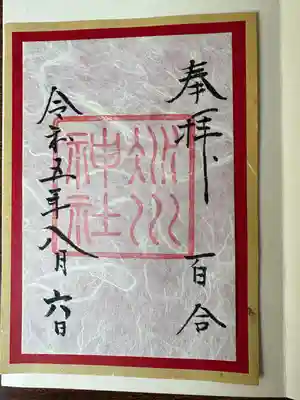 奉拝
百合
神社
令和五年八月六日